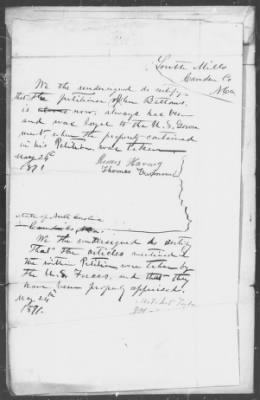 South Mills
Camden Co
N Ca
We the undersigned do certify
that the petitioner John Bettons
is now, always has been
and was loyal to the U.S. Govern
ment, when the property contained
in his Petition were taken
May 26th
1871
Thomas
State of North Carolina
Camden
We the undersigned do certify
that the articles mentioned in
the within Petition were taken by
the U.S. Forces, and that they
have been properly appraised
May 26th
1871.